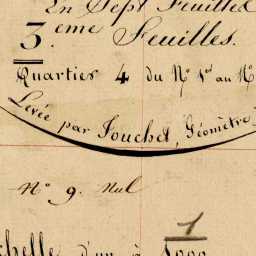 En Sept Feuilles
3.eme Feuilles.
Quartier 4 du N° 1er au N°
Levée par Fouchet, Géomètre
N° 9. Nul
1
chelle d'un à 5000